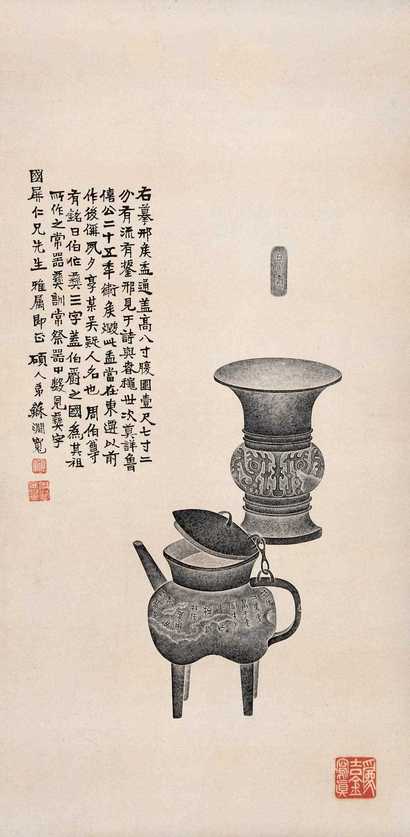 右摹邢侯盉通蓋高八寸腹圍壹尺七寸二
分有流有鋬邢見于詩與春穐世次莫詳魯
僖公二十五年衛侯燬此盉當在東遷以前
作後 夙夕享某吳疑人名也周伯尊
有銘曰伯作彝三字蓋伯爵之國為其祖
所作之常器彝訓常祭器中數見彝字
國屏仁兄先生雅屬即正碩人弟蘇澗寬
吉金